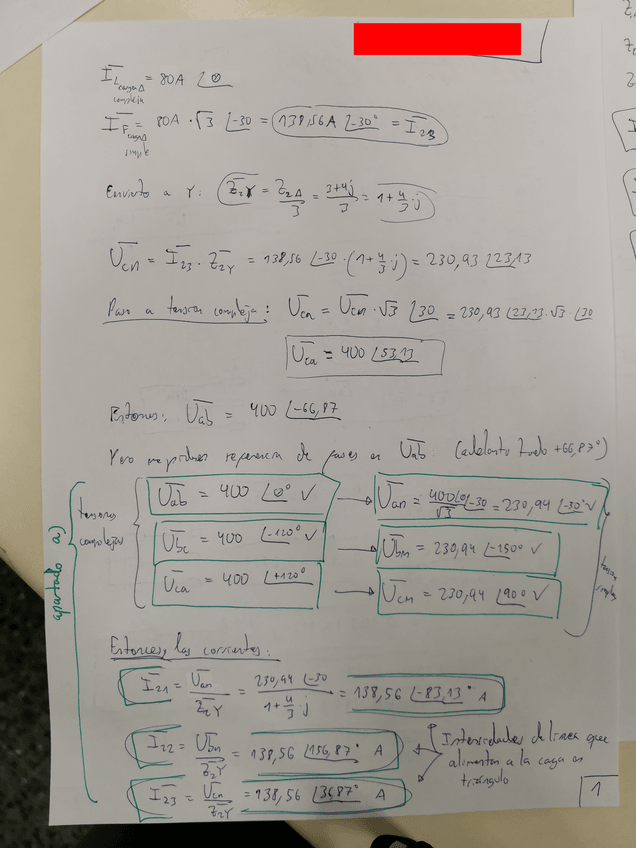 I̅L carga Δ compleja = 80A ∠0
I̅P carga Δ simple = 80A · √3 ∠-30 = 138,56A ∠-30° = I̅23
Convierto a Y: Z̅2Y = Z2Δ/3 = 3+4j/3 = 1 + 4/3 j
U̅cn = I̅23 · Z̅2Y = 138,56 ∠-30 · (1 + 4/3 j) = 230,93 ∠23,13
Paso a tension compleja: U̅ca = U̅cn · √3 ∠30 = 230,93 ∠23,13 · √3 · ∠30
U̅ca = 400 ∠53,13
Entonces: U̅ab = 400 ∠-66,87
Pero me piden referencia de fases en U̅ab: (adelanto todo +66,87°)
apartado a)
tensiones complejas
U̅ab = 400 ∠0° V → U̅an = 400∠0/√3 ∠-30 = 230,94 ∠-30° V
U̅bc = 400 ∠-120° V → U̅bn = 230,94 ∠-150° V
U̅ca = 400 ∠+120° → U̅cn = 230,94 ∠90° V
simples
Entonces, las corrientes:
I̅21 = U̅an/Z̅2Y = 230,94 ∠-30/1 + 4/3 j = 138,56 ∠-83,13° A
I̅22 = U̅bn/Z̅2Y = 138,56 ∠156,87° A
I̅23 = U̅cn/Z̅2Y = 138,56 ∠36,87° A
Intensidades de linea que
alimentan a la carga en
triángulo
1